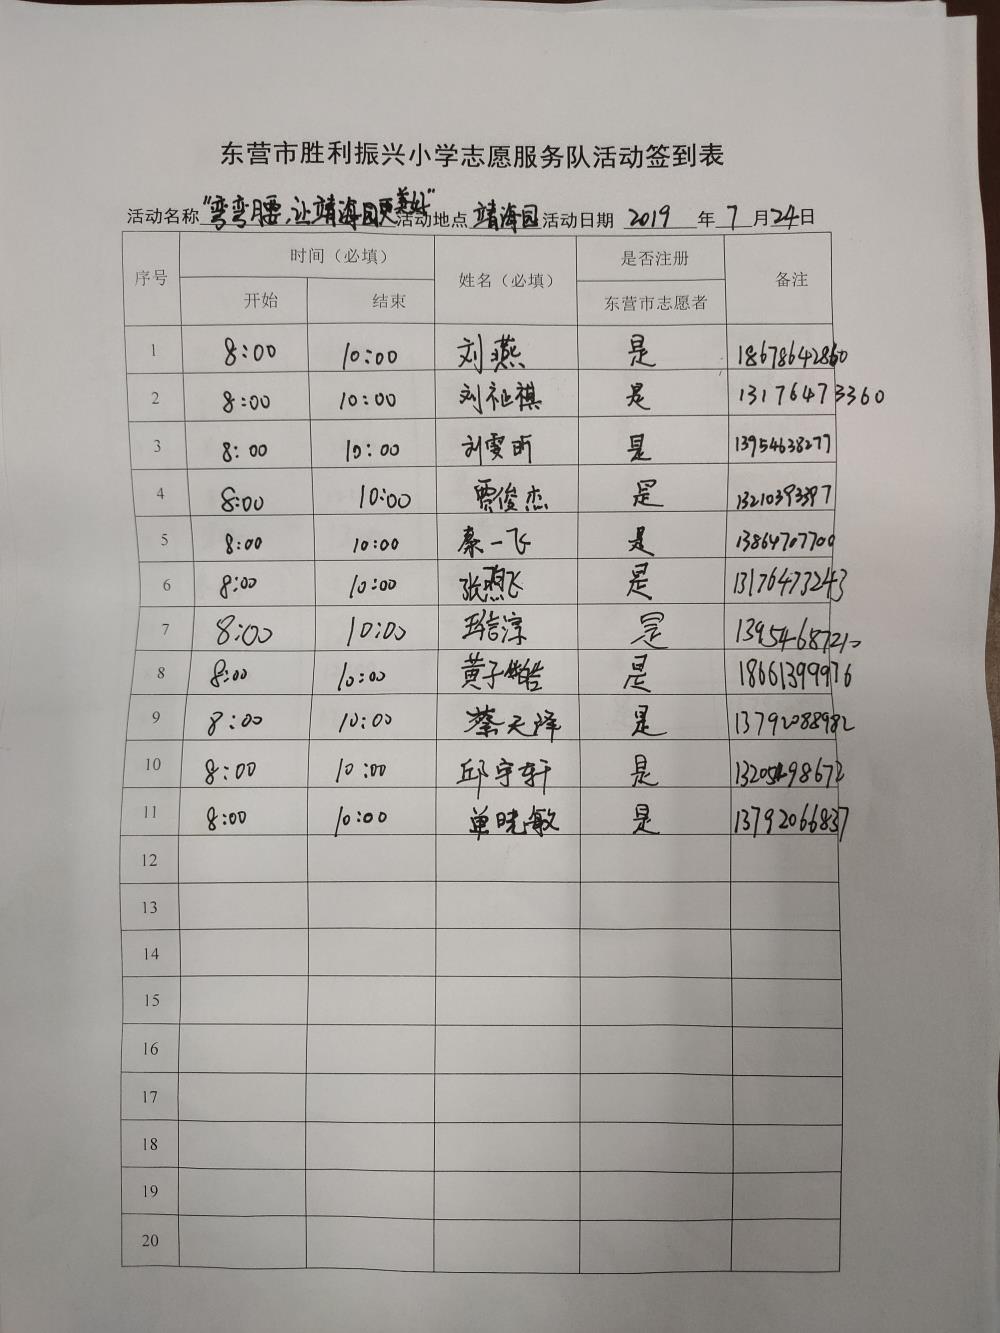 东营市胜利振兴小学志愿服务队活动签到表
活动名称 "弯弯腰,让靖海园更美好" 活动地点 靖海园 活动日期 2019 年 7 月 24 日
序号 时间（必填） 姓名（必填） 是否注册 备注
开始 结束 东营市志愿者
1 8:00 10:00 刘燕 是 18678642860
2 8:00 10:00 刘祉祺 是 13176473360
3 8:00 10:00 刘雯昕 是 13954638277
4 8:00 10:00 贾俊杰 是 13210393397
5 8:00 10:00 秦一飞 是 13864707700
6 8:00 10:00 张熙飞 是 13176473243
7 8:00 10:00 是 13954687210
8 8:00 10:00 黄子皓 是 18661399976
9 8:00 10:00 蔡天泽 是 13792088982
10 8:00 10:00 邱宇轩 是 13205498672
11 8:00 10:00 单晓敏 是 13792066837
12
13
14
15
16
17
18
19
20